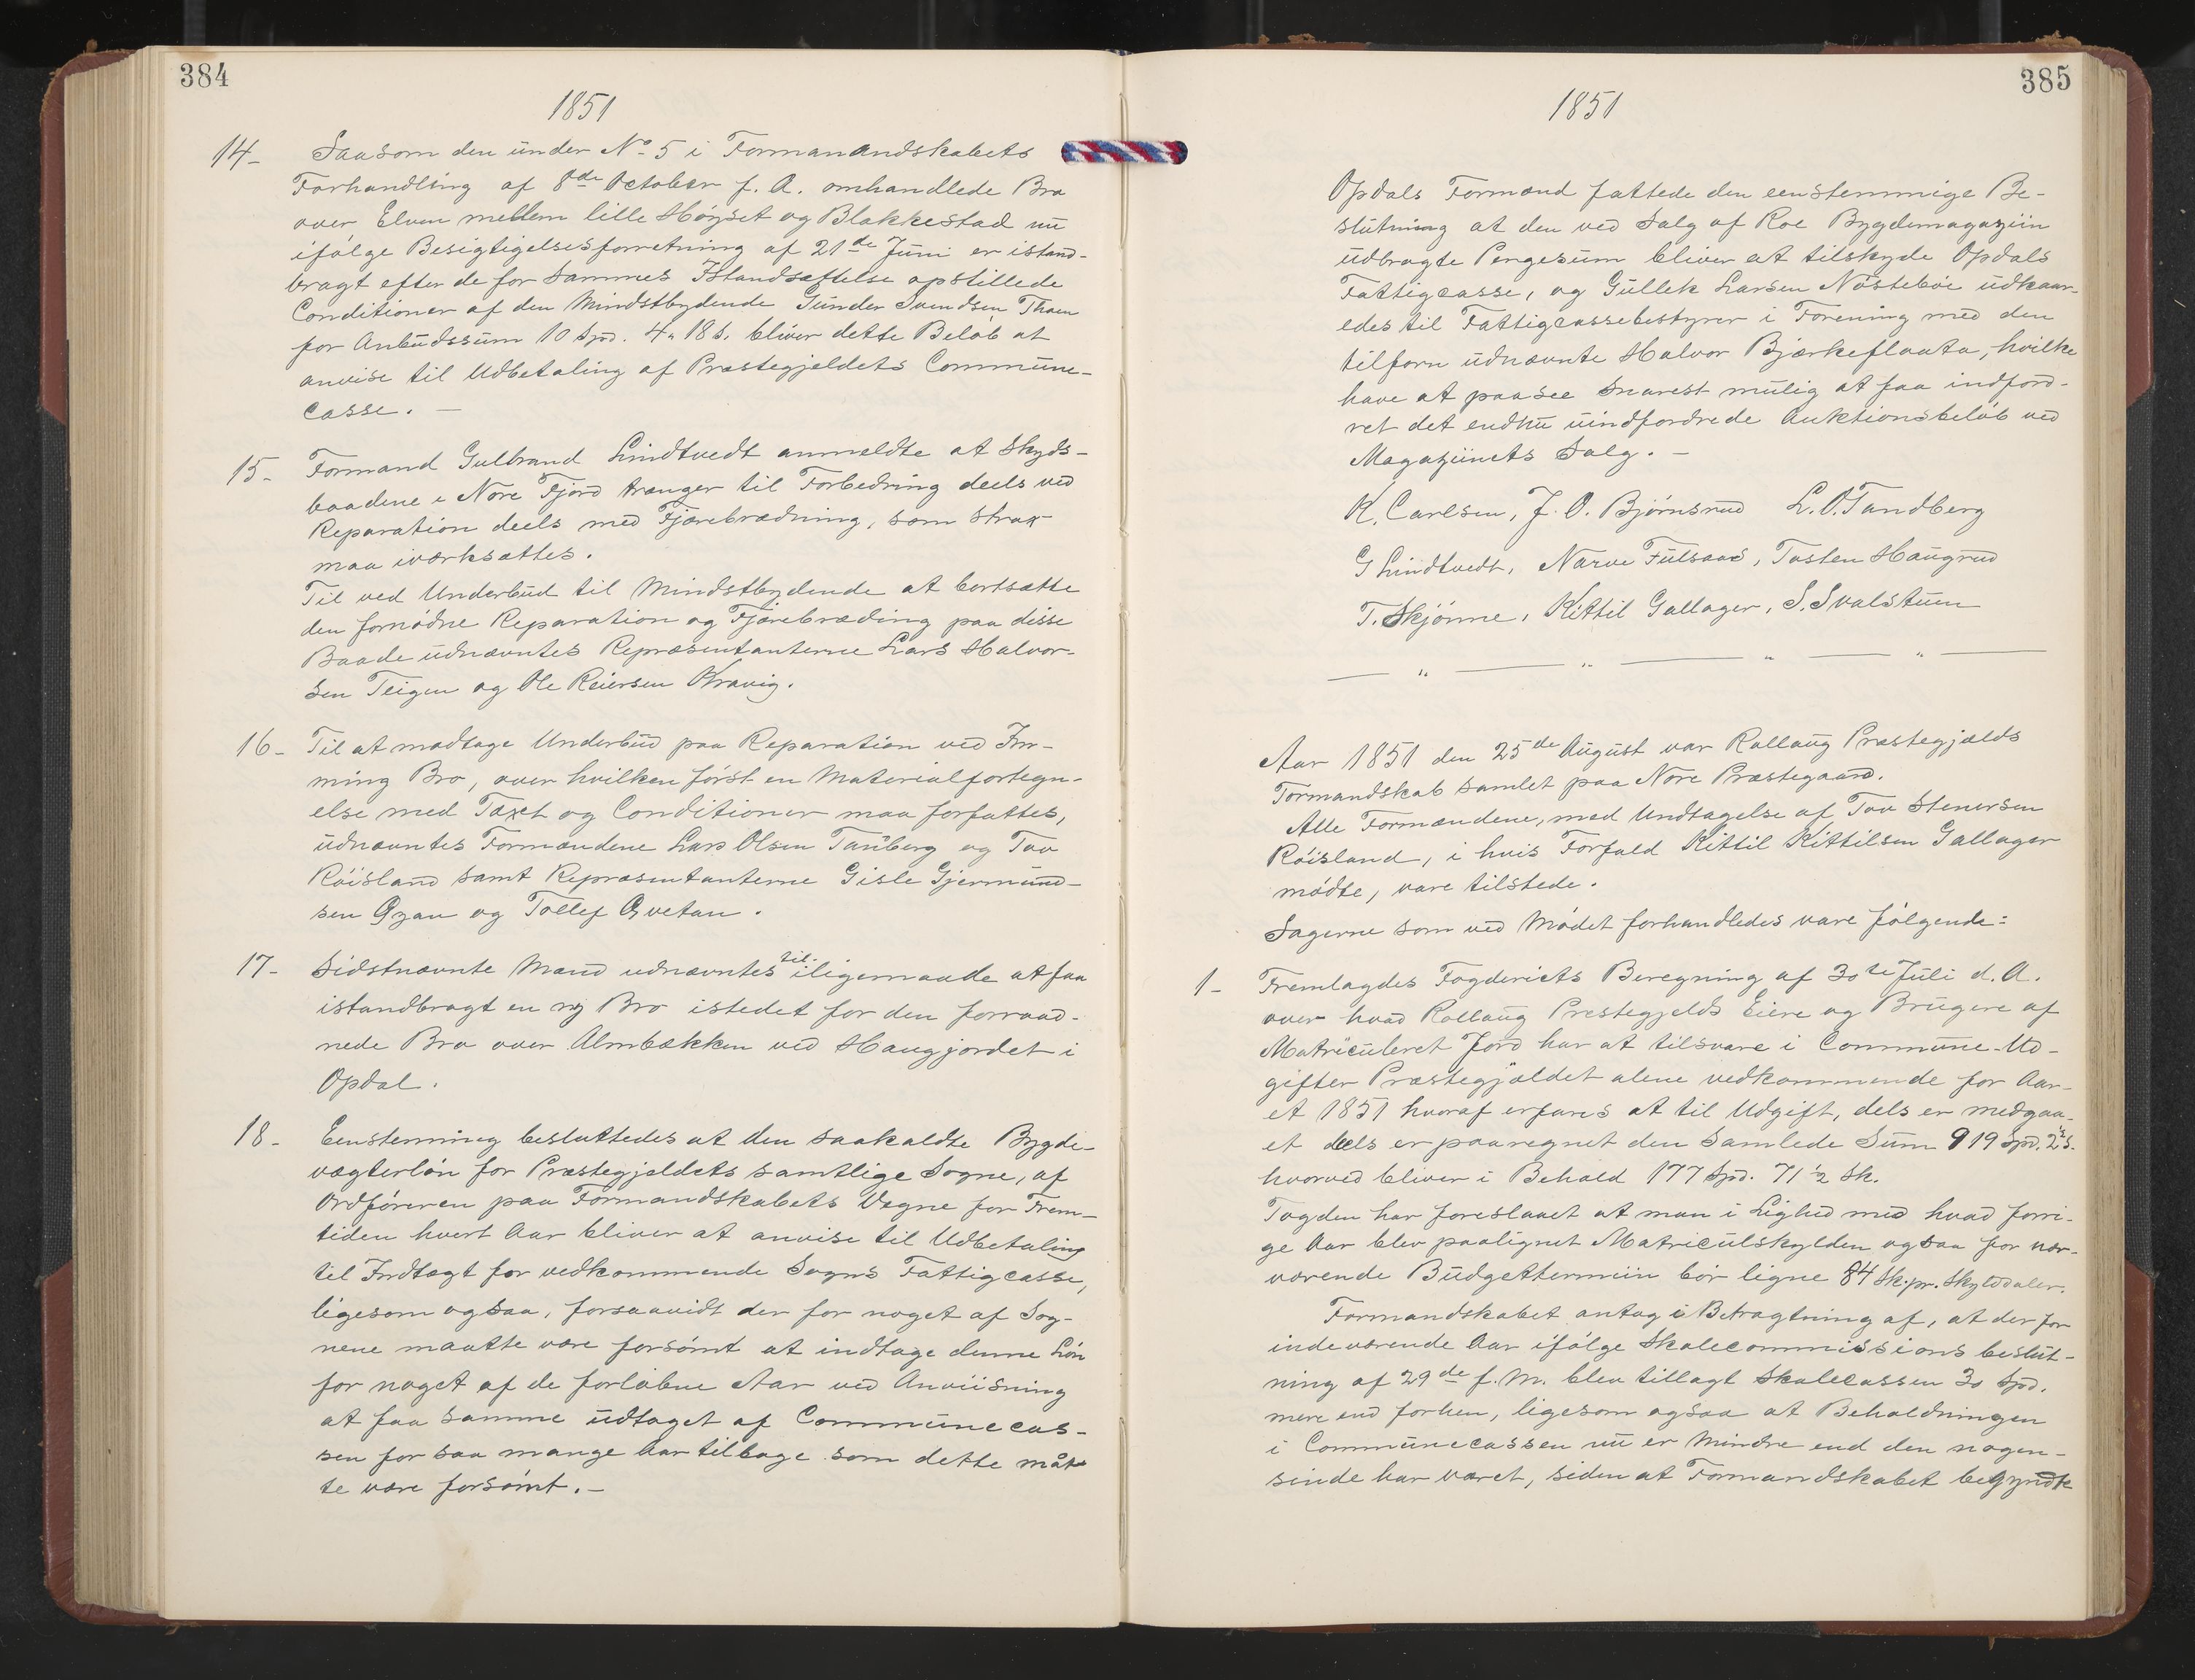 384
1851
14- Saasom den under No 5 i Formanandskabets
Forhandling af 8de October f. A. omhandlede Bro
over Elven mellem lille Høyset og Blakkestad nu
ifølge Besigtigelsesforretning af 21de Juni er istand-
bragt efter de for Sammes Istandsættelse opstillede
Conditioner af den Mindstbydende Gunder Svendsen Thoen
for Anbudssum 10 Spd. 4 " 18 s. bliver dette Beløb at
anvise til Udbetaling af Præstegjeldets Commune-
casse. -
15- Formand Gulbrand Lindtvedt anmeldte at Skyds-
baadene i Nore Fjord trænger til Forbedring deels ved
Reparation deels med Tjærebrædning, som strax
maa iværksættes.
Til ved Underbud til Mindstbydende at bortsætte
den fornødne Reparation og Tjærebræding paa disse
Baade udnævntes Repræsentanterne Lars Halvor-
sen Teigen og Ole Reiersen Kravig.
16- Til at modtage Underbud paa Reparation ved Im-
ming Bro, over hvilken først en Materialfortegn-
else med Taxt og Conditioner maa forfattes,
udnævntes Formændene Lars Olsen Tanberg og Tov
Røisland samt Repræsentanterne Gisle Gjermund-
sen Øyan og Tollef Qvetan.
17- Sidstnævnte Mænd udnævntes til iligemaade at faa
istandbragt en ny Bro istedet for den forraad-
nede Bro over Almbækken ved Haugjordet i
Opdal.
18- Eenstemmig besluttedes at den saakaldte Bygde-
vægterløn for Præstegjeldets samtlige Sogne, af
Ordføreren paa Formandskabets Vegne for Frem-
tiden hvert Aar bliver at anvise til Udbetaling
til Indtægt for vedkommende Sogns Fattigcasse,
ligesom ogsaa, forsaavidt der for noget af Sog-
nene maatte være forsømt at indtage denne Løn
for noget af de forløbne Aar ved Anviisning
at faa samme udtaget af Communecas-
sen for saa mange Aar tilbage som dette måt-
te være forsømt. -
385
1851
Opdals Formænd fattede den eenstemmige Be-
slutning at den ved Salg af Roe Bygdemagaziin
udbragte Pengesum bliver at tilskyde Opdals
Fattigcasse, og Gullek Larsen Nøstebøe udkaar-
edes til Fattigcassebestyrer i Forening med den
tilforn udnævnte Halvor Bjærkeflaata, hvilke
have at paasee snarest mulig at faa indford-
ret det endnu uindfordrede Auktionsbeløb ved
Magaziinets Salg. -
K. Carlsen, J. O. Bjørnsrud L. O. Tandberg
G Lindtvedt, Narve Fulsaas, Tosten Haugrud
T. Skjønne, Kittil Gallager, S. Svalstuen
Aar 1851 den 25de August var Rollaug Præstegjælds
Formandskab samlet paa Nore Præstegaard.
Alle Formændene, med Undtagelse af Tov Stenersen
Røisland, i hvis Forfald Kittil Kittilsen Gallager
mødte, vare tilstede.
Sagerne som ved Mødet forhandledes vare følgende:
1- Fremlagdes Fogderiets Beregning af 30te Juli d. A.
over hvad Rollaug Prestegjelds Eiere og Brugere af
Matriculeret Jord har at tilsvare i Commune-Ud-
gifter Præstegjældet alene vedkommende for Aar-
et 1851 hvoraf erfares at til Udgift, dels er medgaa-
et deels er paaregnet den samlede Sum 919 Spd. 2½ s.
hvorved bliver i Behold 177 Spd. 71 ½ Sk.
Fogden har foreslaaet at man i Lighed med hvad forri-
ge Aar blev paalignet Matriculskylden ogsaa for nær-
værende Budgettermiin bør ligne 84 Sk. pr. Skylddaler.
Formandskabet antog i Betragtning af, at der for
indeværende Aar ifølge Skolecommissions beslut-
ning af 29de f. M. blev tillagt Skolecassen 30 Spd.
mere end forhen, ligesom ogsaa at Beholdningen
i Communecassen nu er mindre end den nogen-
sinde har været, siden at Formandskabet begyndte